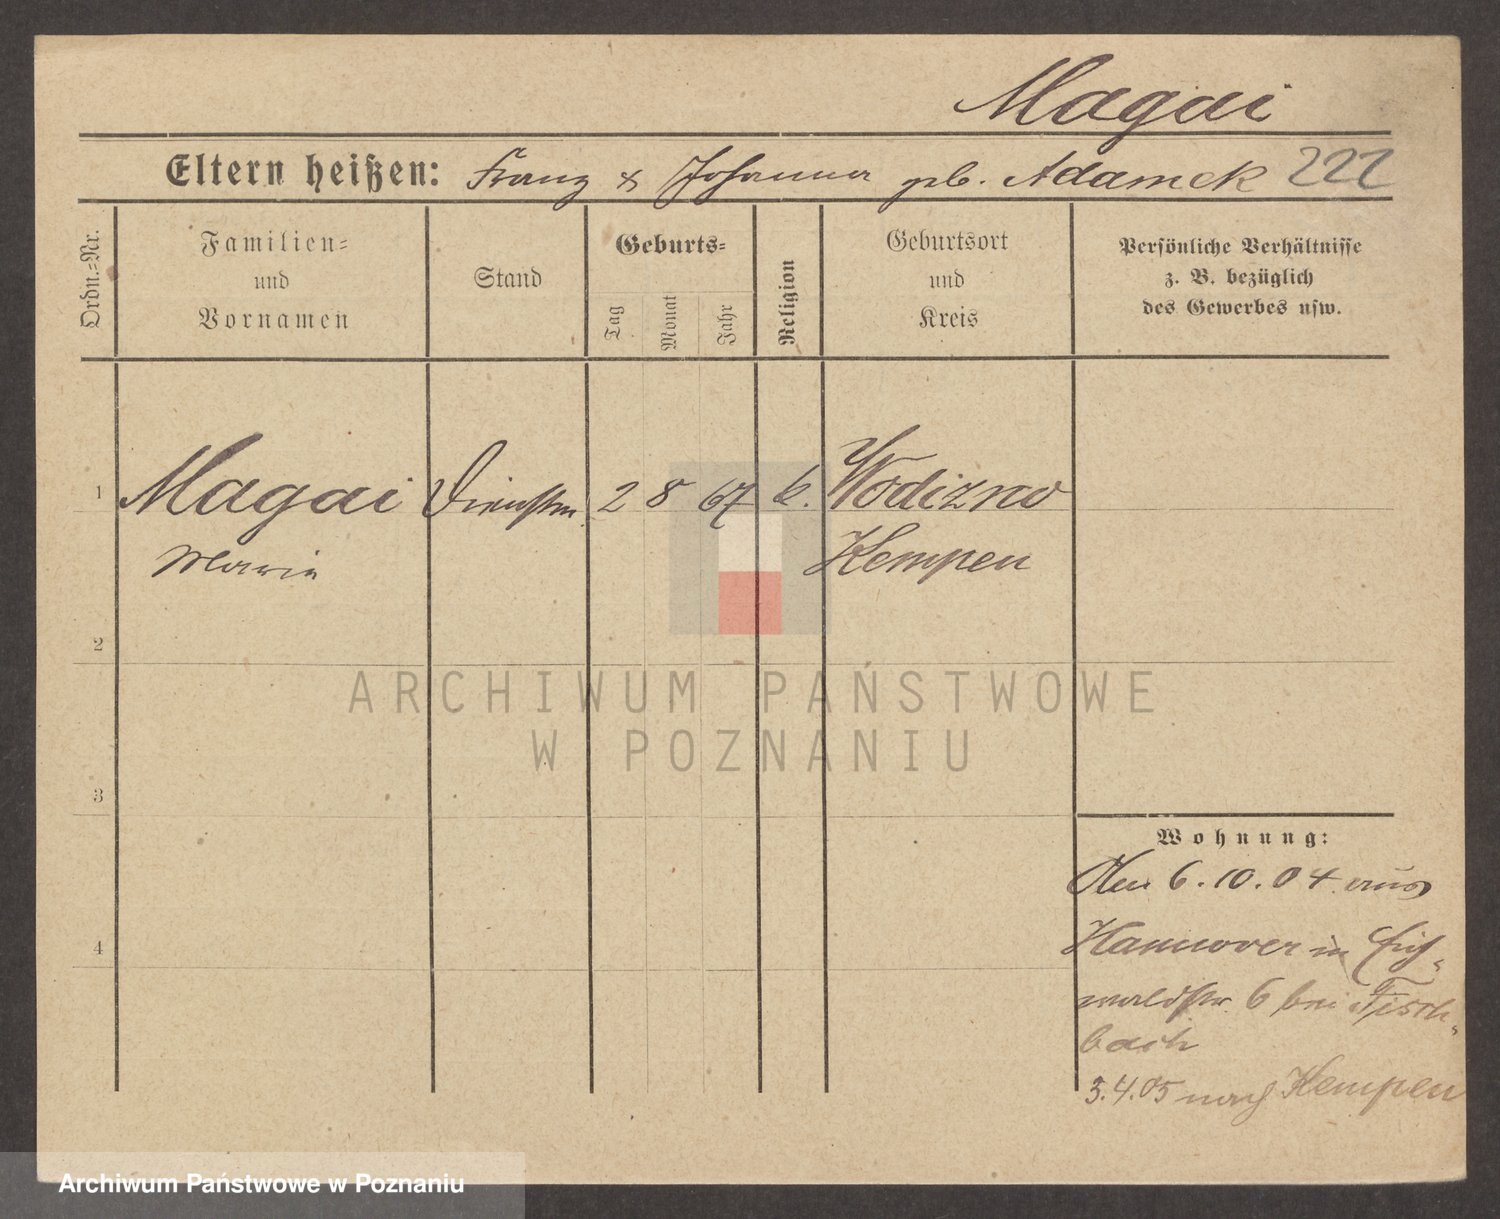 Magai
Eltern heißen: Franz & Johanna geb. Adamek 222
Ordn.=Nr.
Familien=
und
Vornamen
Stand
Geburts=
Tag
Monat
Jahr
Religion
Geburtsort
und
Kreis
Persönliche Verhältnisse
z. B. bezüglich
des Gewerbes usw.
1 Magai 2 8 67 k. Wodizno
Marie Kempen
2
3
4
ARCHIWUM PAŃSTWOWE
W POZNANIU
Wohnung:
Den 6.10.04 aus
Hannover in Eich=
waldstr. 6 bei Fisch=
bach
3.4.05 nach Kempen
Archiwum Państwowe w Poznaniu